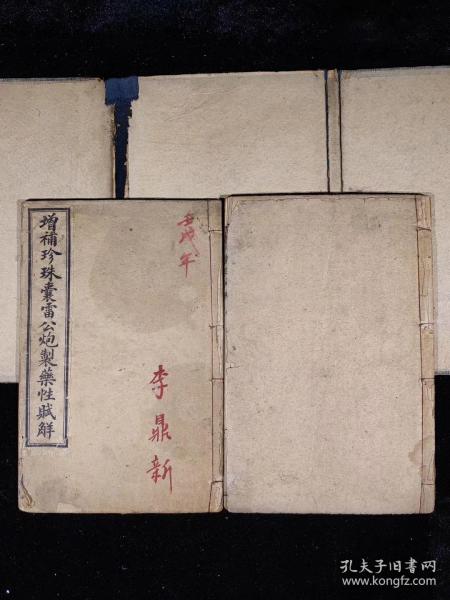 增補珍珠囊雷公炮製藥性賦解
壬戌年
李鼎新
孔夫子旧书网
www.kongfz.com